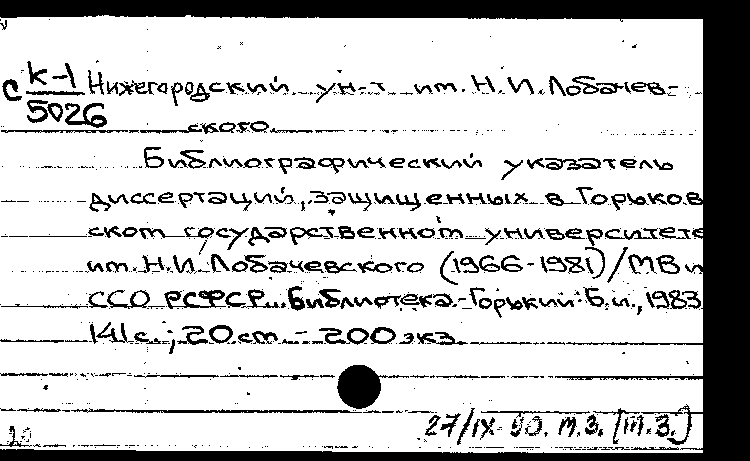 с К-1 Нижегородский ун-т им. Н.И. Лобачев-
5026
ского.
Библиографический указатель
диссертаций, защищенных в Горьков
ском государственном университете
им. Н.И. Лобачевского (1966-1981) / МВ и
ССО РСФСР... Библиотека.-Горький: Б.и., 1983
141 с.; 20 см. - 200 экз.
27/IX-90. м.з. (м.з.)
20